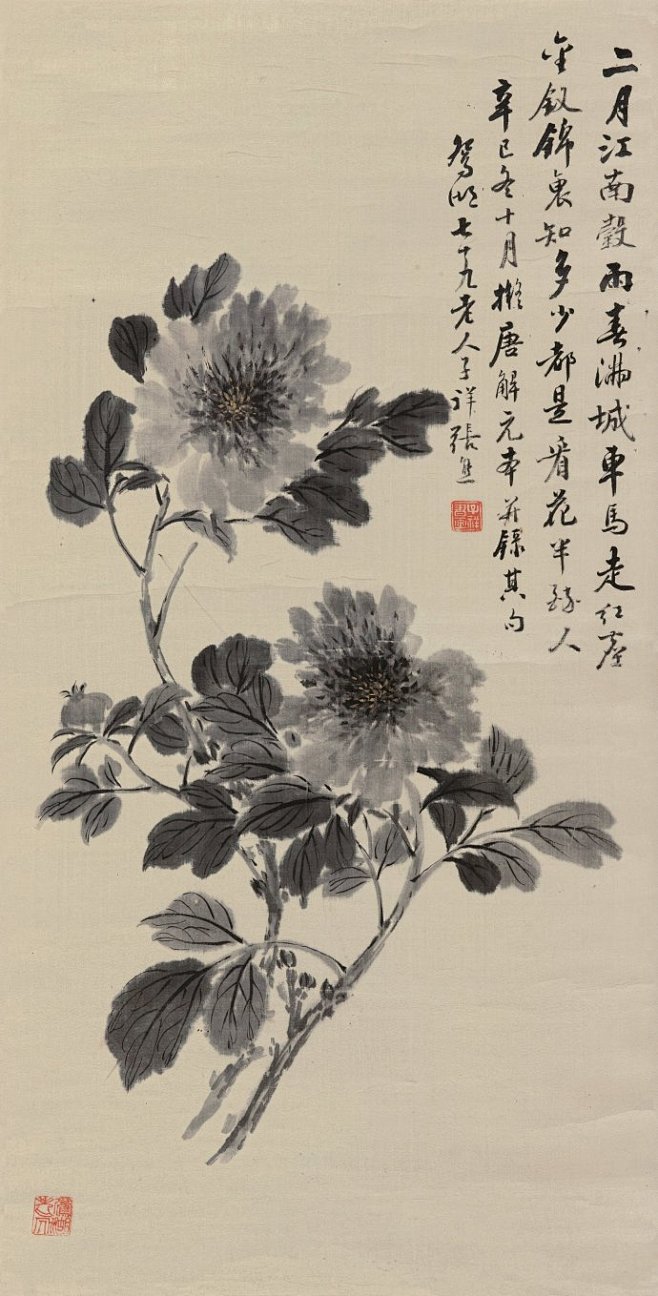 二月江南穀雨春滿城車馬走紅塵
金釵錦裏知多少都是看花半醉人
辛巳冬十月擬唐解元本并錄其句
鴛湖七十九老人子祥張熊
子祥書畫